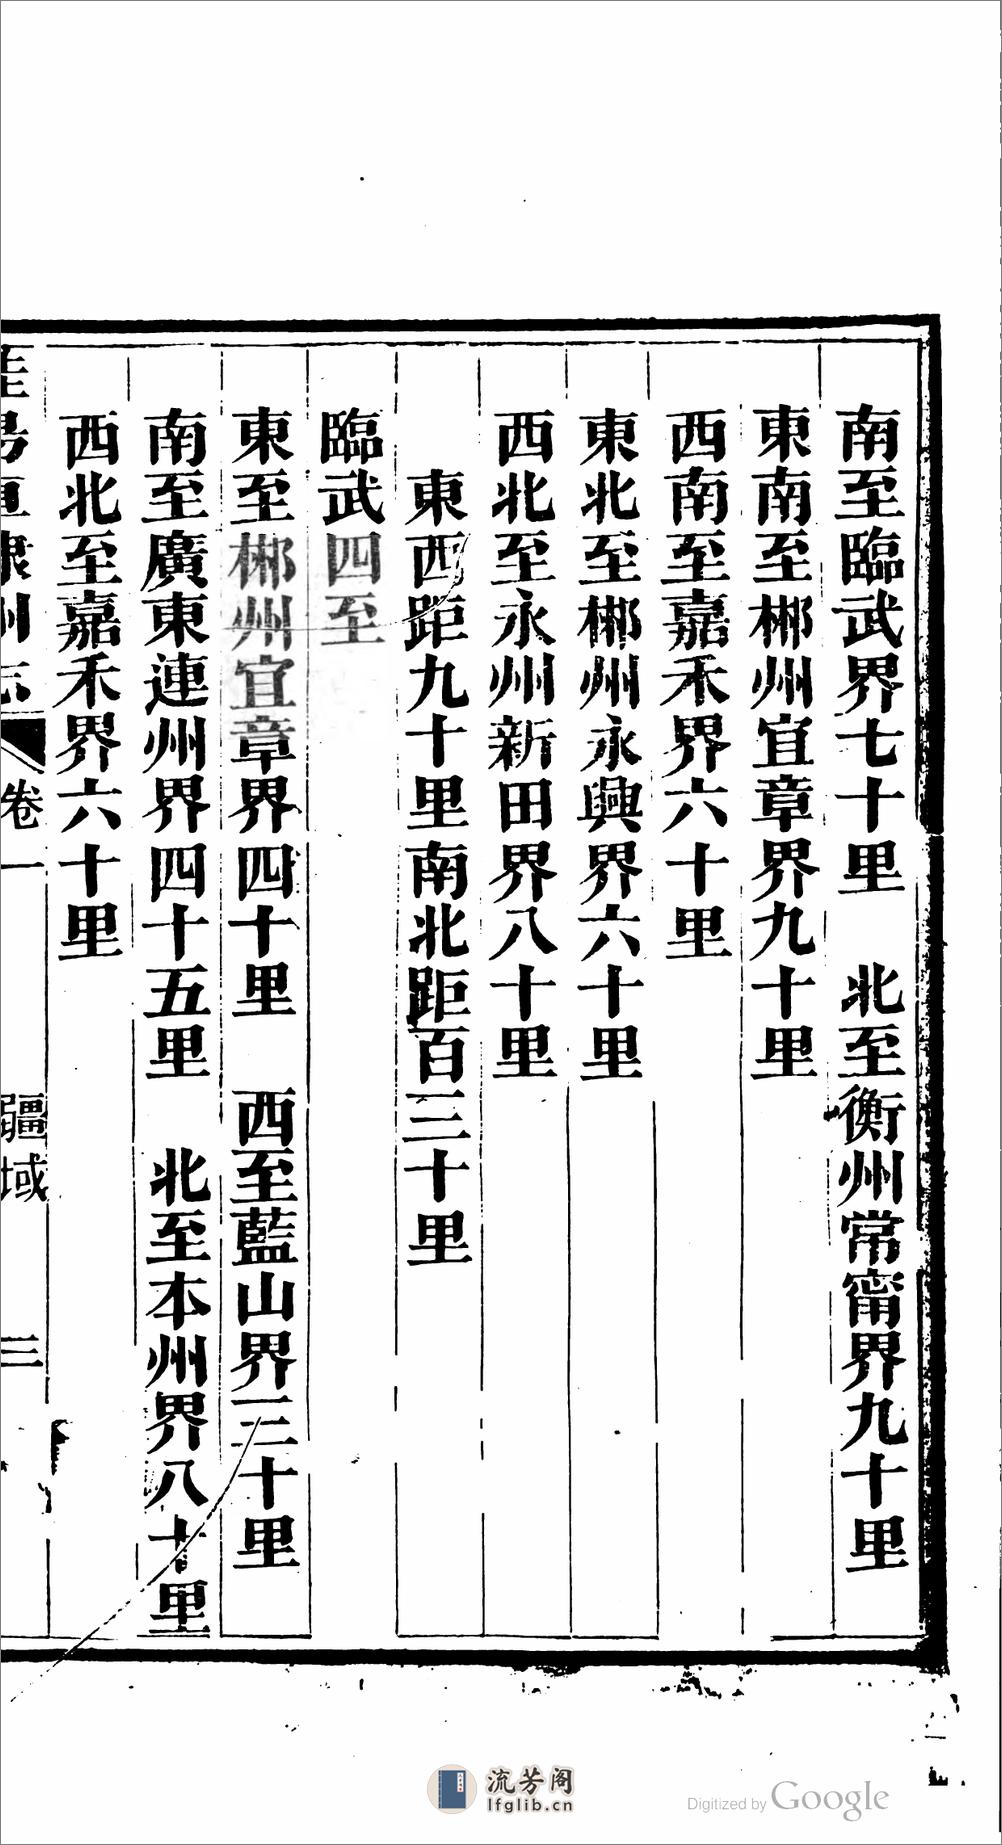 南至臨武界七十里　北至衡州常甯界九十里
東南至郴州宜章界九十里
西南至嘉禾界六十里
東北至郴州永興界六十里
西北至永州新田界八十里
東西距九十里南北距百三十里
臨武四至
東至郴州宜章界四十里　西至藍山界三十里
南至廣東連州界四十五里　北至本州界八十里
西北至嘉禾界六十里
桂陽直隸州志　卷一　疆域　三
流芳阁
lfglib.cn
Digitized by Google